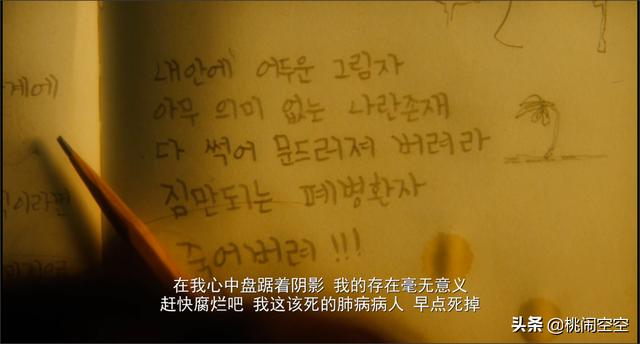 계에
내안에 어두운 그림자
아무 의미 없는 나란존재
다 썩어 문드러져 버려라
짐만되는 폐병환자
죽어버려 !!!
在我心中盘踞着阴影 我的存在毫无意义
赶快腐烂吧 我这该死的肺病病人 早点死掉
头条 @桃闹空空